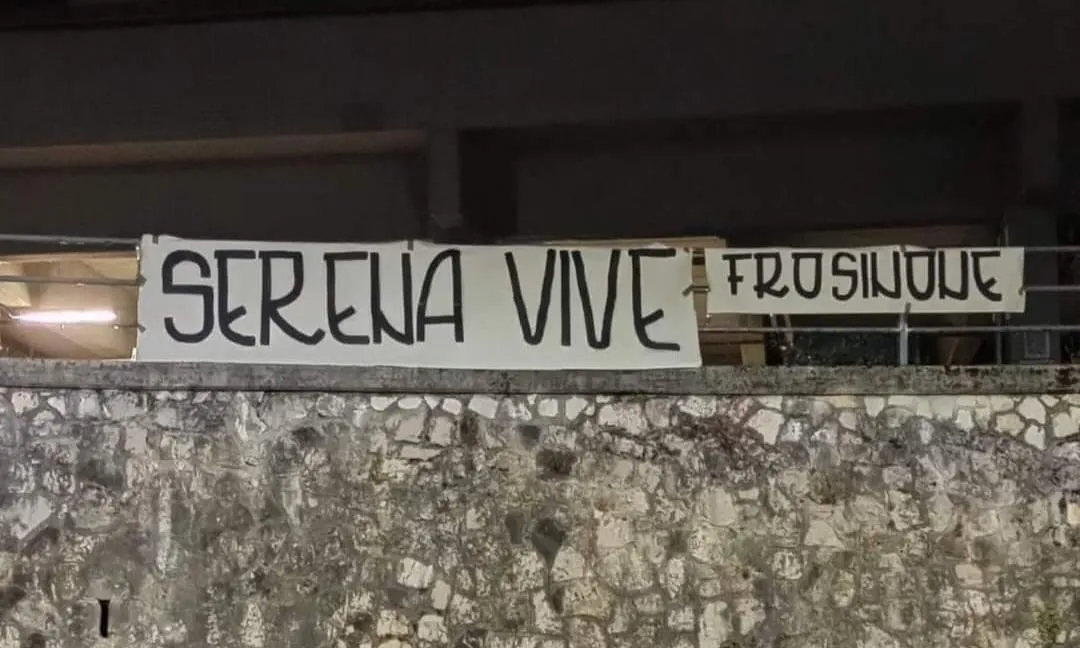 SERENA VIVE
FROSINONE